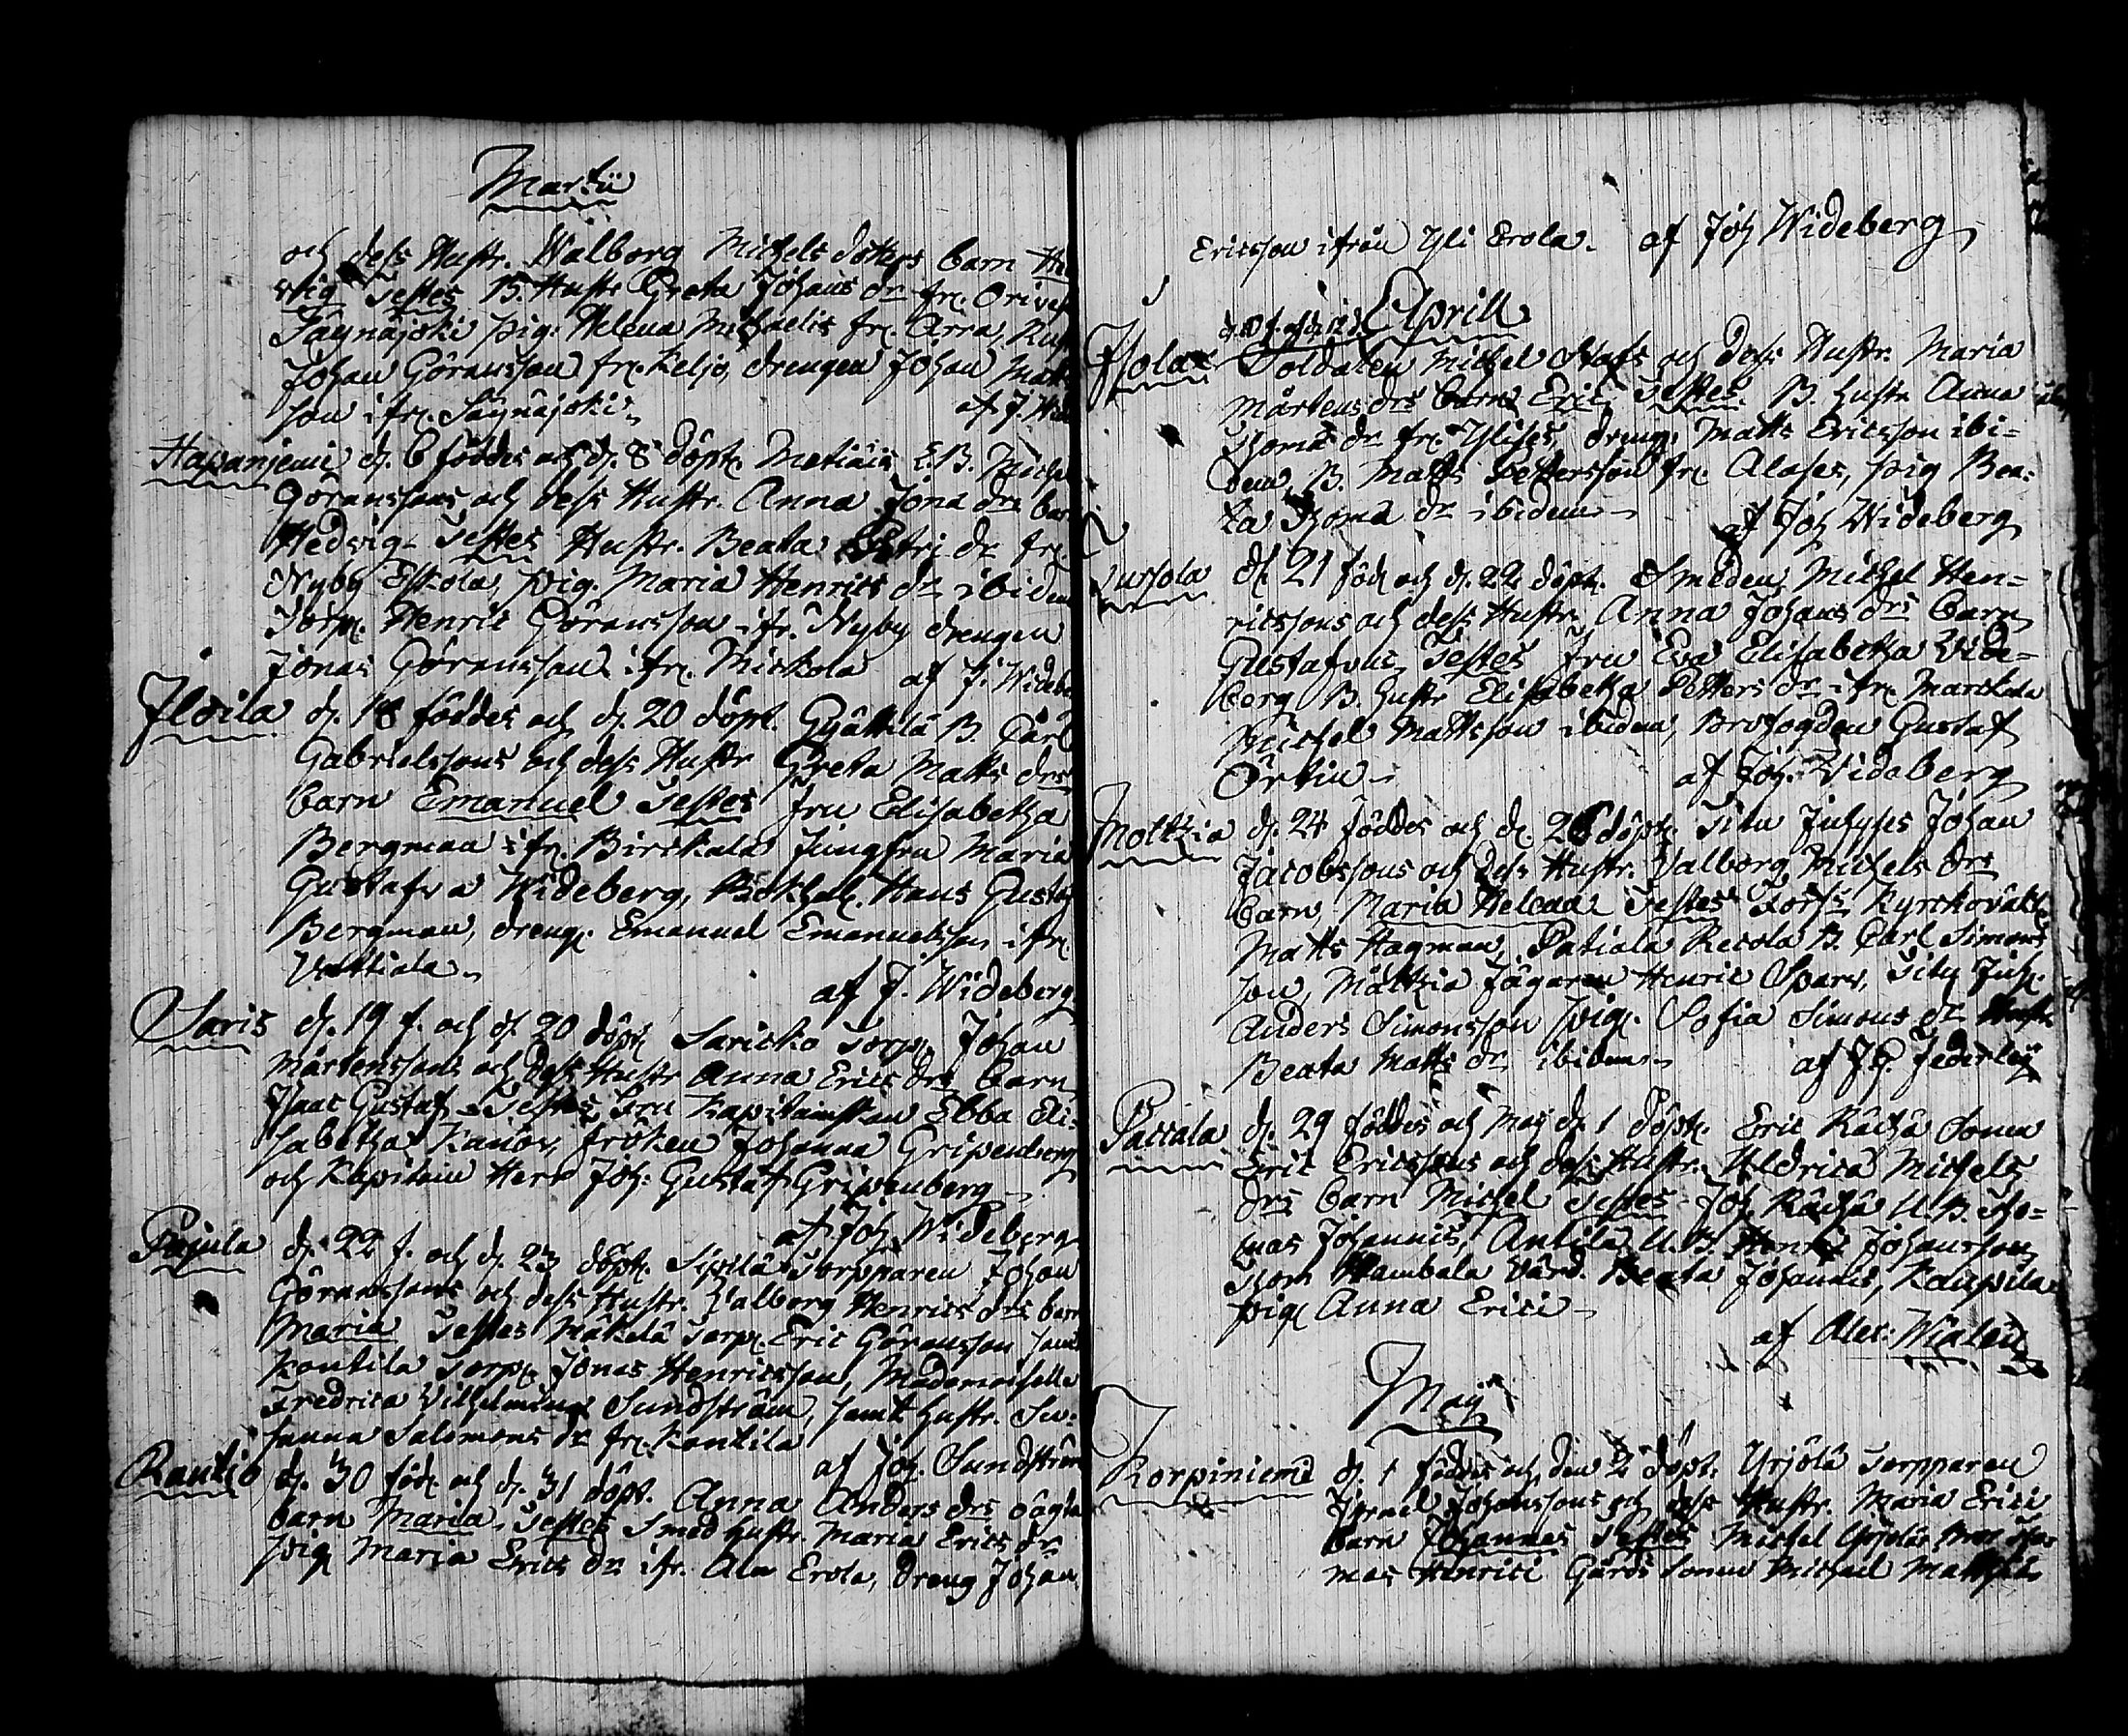 Martii
och dess Hustr. Walborg Michels dotters barn He
wig Testes B. Hustr Greta Johans dr fr. Orives
Säynäjoki pig. Helena Michaelis fr. Arra,
Johan Göransson fr. Keljo, drengen Johan Matts
son ifr. Säynäjoki
af J. Wid
Hapanjemi d. 6 föddes och d. 8 döpt. Metiäis E.B. Michel
Göranssons och dess Hustr. Anna Jona drs bar
Hedvig. Testes Hustr. Beata dr fr.
Nyby Eskola, pig. Maria Henrics dr ibidem
Torp. Henric Göransson ifr. Nyby drengen
Jonas Göransson ifr. Mickola af J. Widebe
Iloila d. 18 föddes och d. 20 döpt. Gyättilä B. Carl
Gabrielssons och dess Hustr Greta Matts drs
barn Emanuel Testes fru Elisabetha
Bergman ifr. Birckala Jungfru Maria
Gustafva Wideberg, Bokhål. Hans Gustaf
Bergman, dreng. Emanuel Emanuelsson ifr.
Vattiala
af J. Wideberg
Saris d. 19 f. och d. 20 döpt Saricko Torp. Johan
Mårtenssons och dess Hustr Anna Erics drs barn
Isaac Gustaf Testes Fru Kapitainskan Ebba Eli-
sabetha Kanöv, fröken Johanna Gripenberg
och Kapitain Herr Joh: Gustaf Gripenberg
af Joh Wideberg
Pajula d. 22 f. och d. 23 döpt. Sipilä Torpparen Johan
Göranssons och dess Hustr. Valborg Henrics drs barn
Maria Testes Mäkelä Torp. Eric Göransson samt
Kontila Torp. Jonas Henricsson, Mademoiselle
Fredrica Vilhelmina Sundström, samt Hustr. Su-
sanna Salomons dr fr. Kontila
af Joh. Sundström
Rautio d. 30 föd. och d. 31 döpt. Anna Anders drs oägta
barn Maria, Testes Smed Hustr. Maria Erics dr
pig Maria Erics dr ifr. Ala Erola, dreng Johan
Ericsson ifrån Yli Erola. af Joh Wideberg
Aprill
Isola Soldaten Michel Stafs och dess Hustr. Maria
Mårtens drs barn Eric Testes. B. Hustr Anna
Thoma dr fr. Ylises, dreng. Matts Ericsson ibi-
dem, B. Matts Pettersson fr. Alases, pig Bea-
ta Thoma dr ibidem
af Joh Wideberg
Sursola d. 21 föd och d. 22 döpt. Smeden Michel Hen-
ricssons och dess Hustr. Anna Johans drs barn
Gustafva, Testes Fru Eva Elisabetha Wide-
berg B. Hustr Elisabetha Petters dr ifr. Marckola
Michel Mattsson ibidem, Brofogden Gustaf
Örtin
af Joh. Wideberg
Mottzia d. 24 föddes och d. 26 döpt. Johan
Jacobssons och dess Hustr. Valborg Michels drs
barn Maria Helena Testes Kyrckovakt.
Matts Hagman, Patiala Recola B. Carl Simons
son, Mattzia Jägaren Henric Sparv,
Anders Simonsson pig. Sofia Simons dr Hustr
Beata Matts dr ibidem
af J. Federley
Paccala d. 29 föddes och Maj d. 1 döpt. Eric Räihä Sonen
Eric Ericssons och dess Hustr. Uldrica Michels
drs barn Michel Testes Joh. Räihä U.B. Tho-
mas Johannis, Antila U.B. Henric Johansson
Thom Hambala Värd. Beata Johannis, Kaupila
pig Anna Erici
af Alex: Wialen
Maj
Korpiniemi d. 1 föddes och den 2 döpt. Yrjölä Torpparen
Israel Johanssons och dess Hustr. Maria Erici
barn Johannes Testes Michel Yrjölä Tho-
mas Henrici Gårds Sonen Michael Matthiae